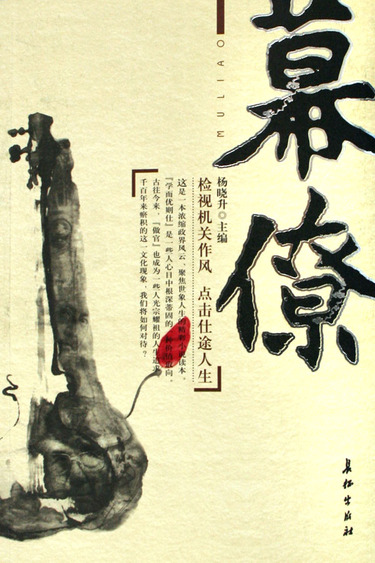 幕僚
MULIAO
杨晓升◎主编
检视机关作风 点击仕途人生
这是一本浓缩政界风云、聚焦世象人生的精粹小说读本。
『学而优则仕』是一些人心目中根深蒂固的
古往今来，『做官』也成为一些人光宗耀祖的人生追求
千百年来瘀积的这一文化现象，我们将如何对待？
长征出版社